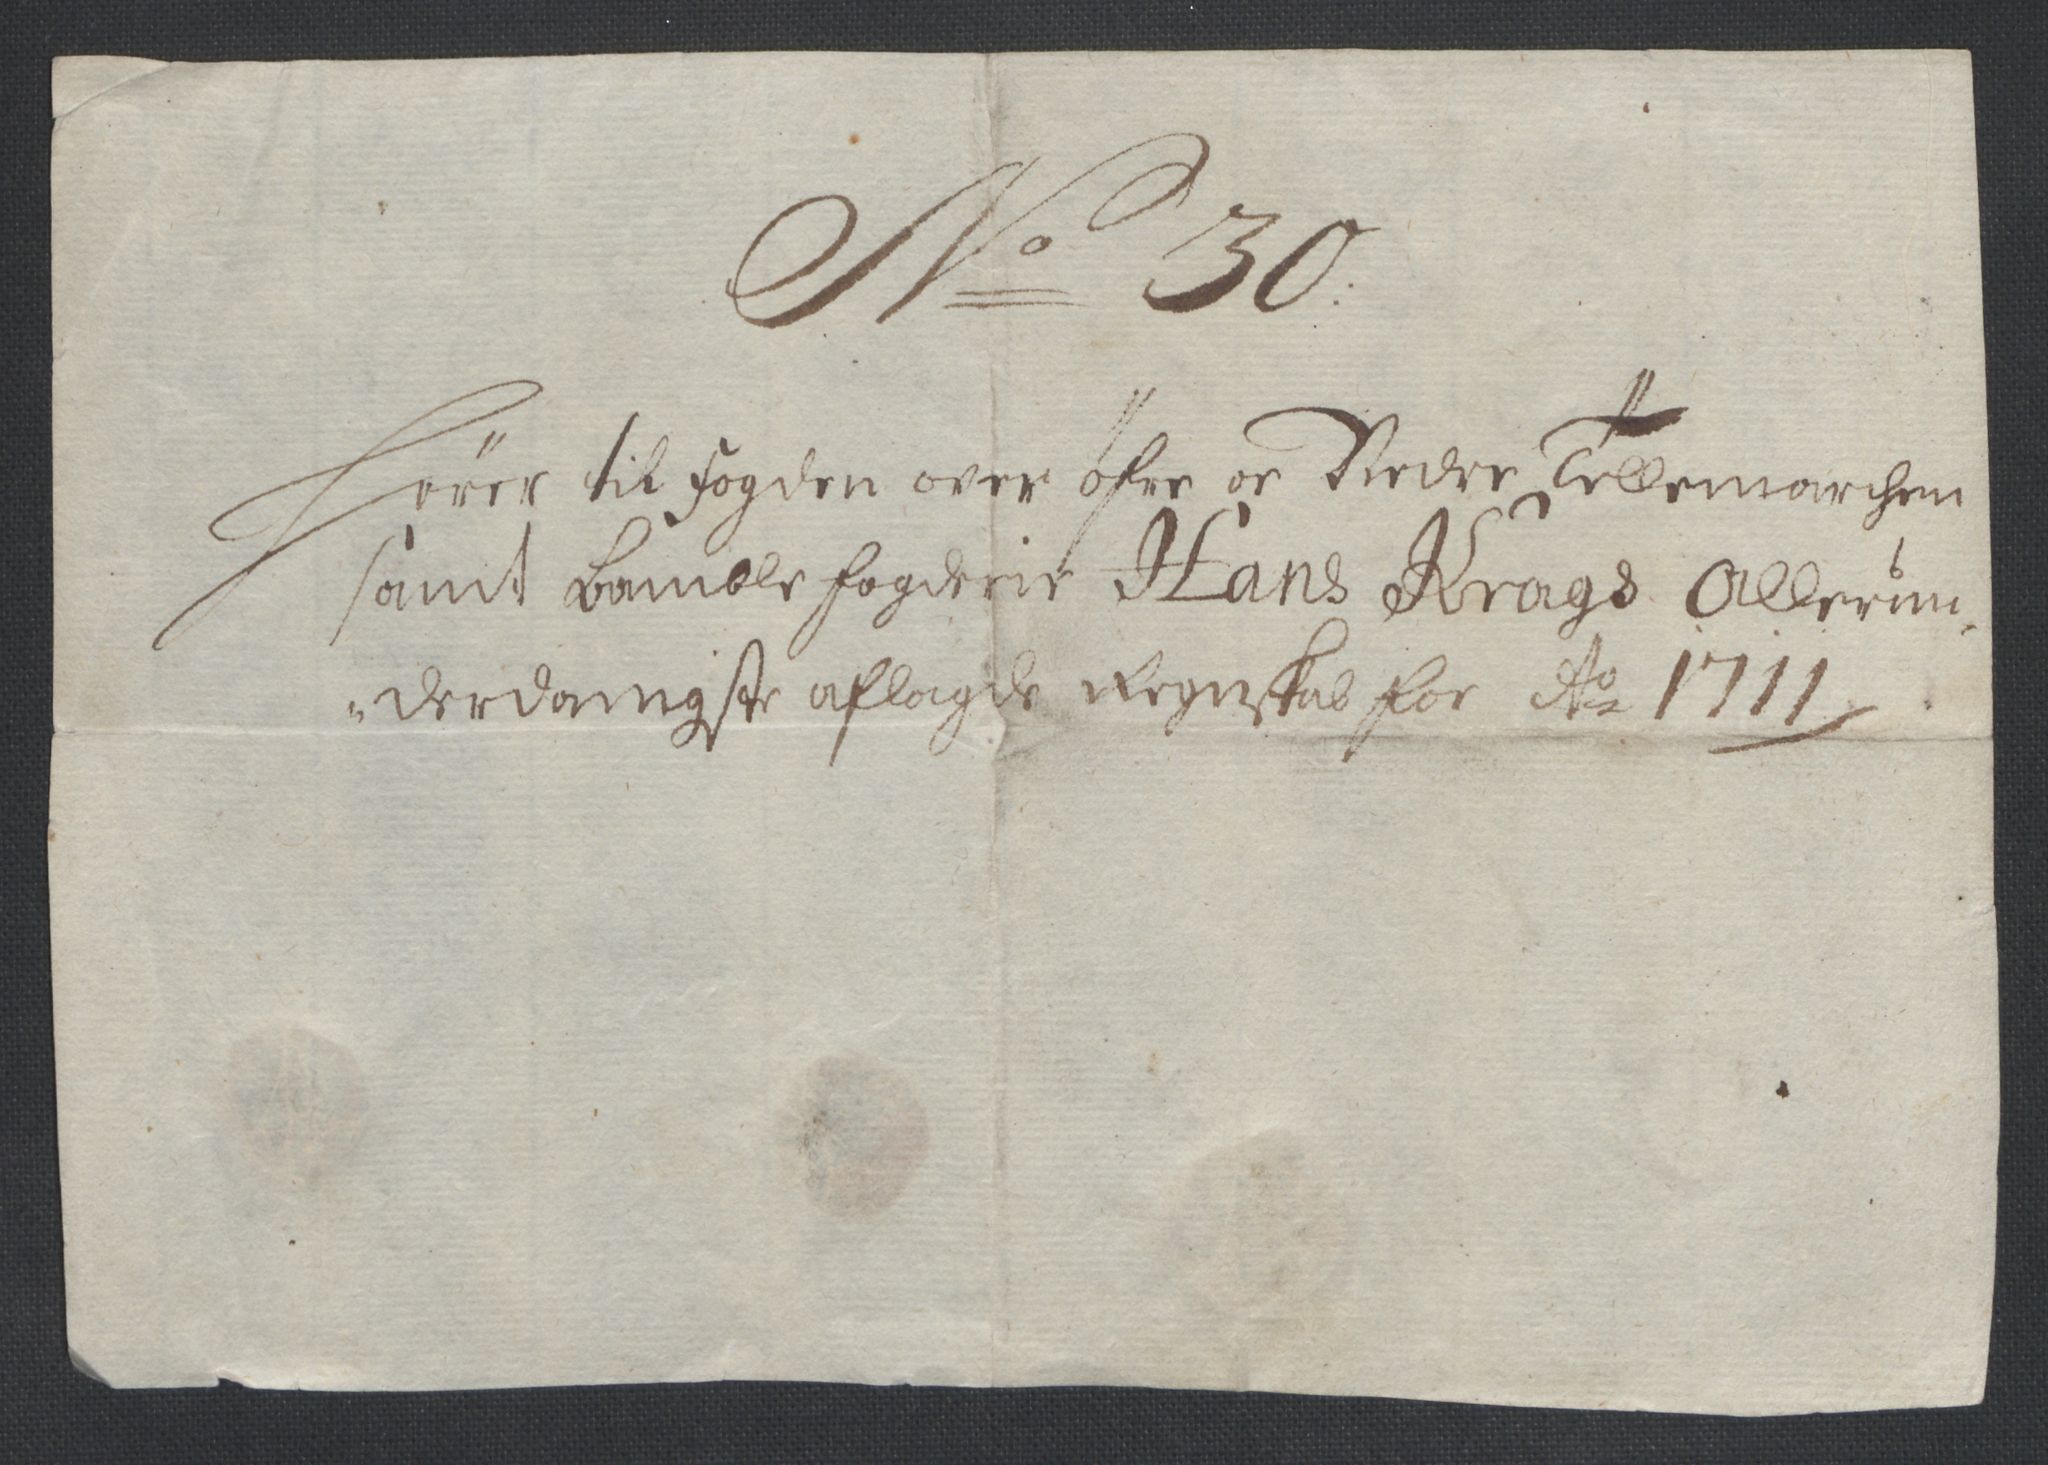 No 30.
Hörer til Fogden over öfre oc Nedre Tellemarchen
samt Bamble fogderie Hans Krags Allerun-
derdanigste aflagde Regnskab for Ao 1711